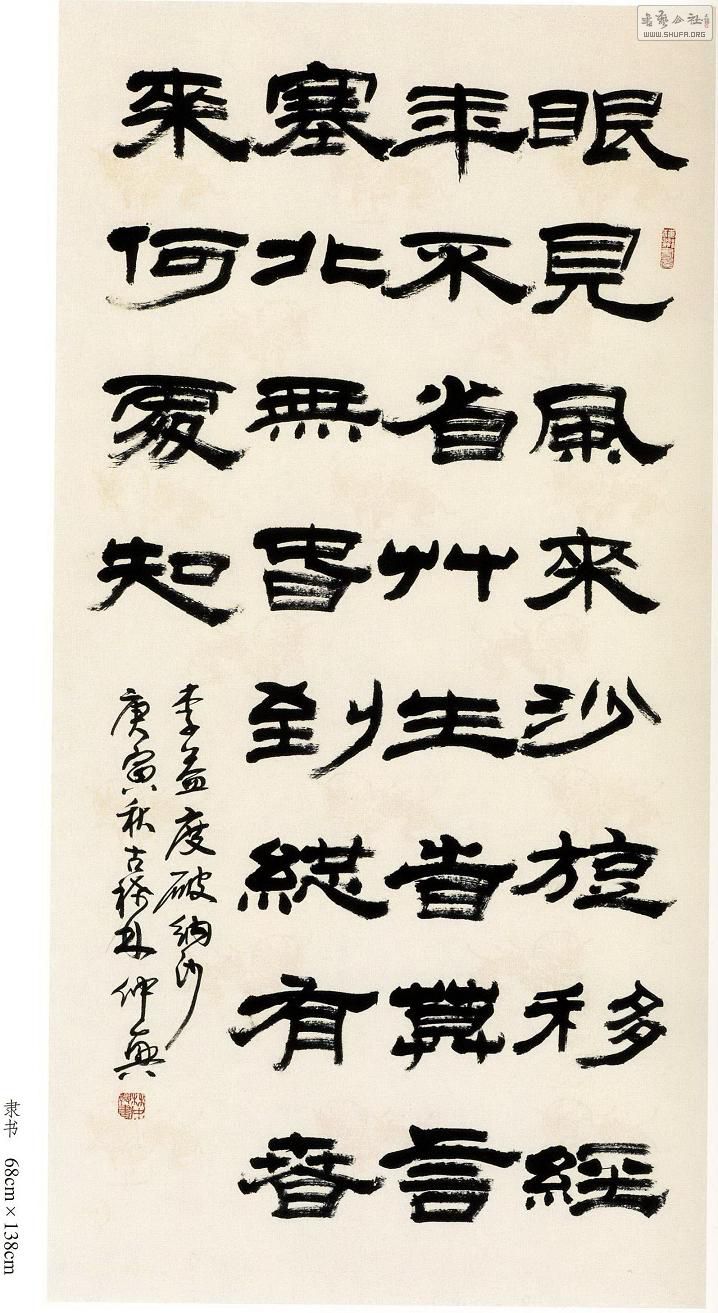 眼見風來沙旋移經
年不省艸生旹莫言
塞北無春到緫有春
來何處知
李益度破納沙
庚寅秋古稀林仲興
隶书 68cm×138cm
书艺公社
WWW.SHUFA.ORG